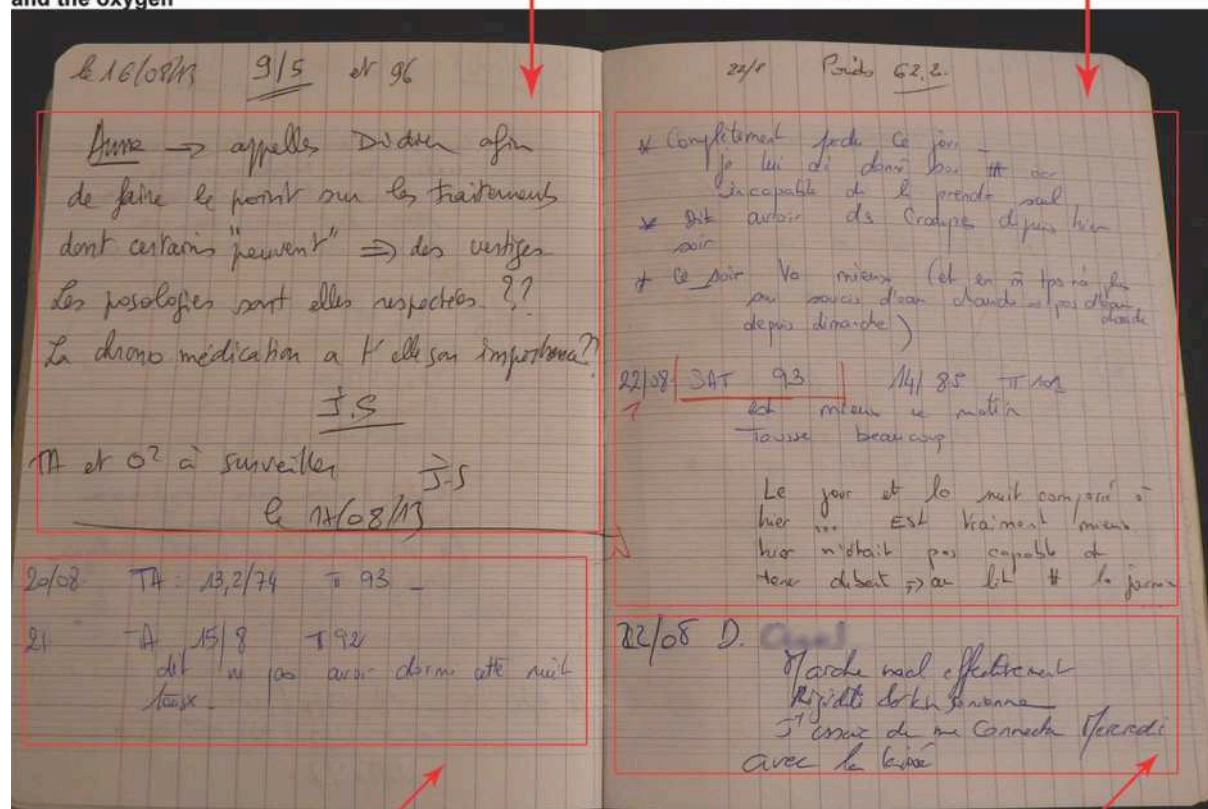 and the oxygen
le 16/08/13 9/5 et 96
Anne → appelles Didier afin
de faire le point sur les traitements
dont certains "peuvent" ⇒ des vertiges
Les posologies sont elles respectées ??
La chrono médication a t'elle son importance ??
J.S
TA et O² à surveiller J-S
le 17/08/13
20/08 TA : 13,2/74 π 93 -
21 TA 15/8 π 92
dit ne pas avoir dormi cette nuit
toux -
22/8 Poids 62.2.
* Complètement ce jour -
je lui ai donné car
incapable de le prendre seul
* Dit avoir des Crampes depuis hier
soir
* Ce soir Va mieux (et en m̄ tps
soucis d'eau chaude → pas d'eau chaude
depuis dimanche)
22/08 SAT 93 14/85 π 102
est mieux ce matin
Tousse beaucoup
Le jour et la nuit comparé à
hier ... EST vraiment mieux
hier n'était pas capable de
tenir debout ⇒ au lit # la
22/08 D.
Marche mal effectivement
Rigidité
J'essaie de me Connecter Mercredi
avec le